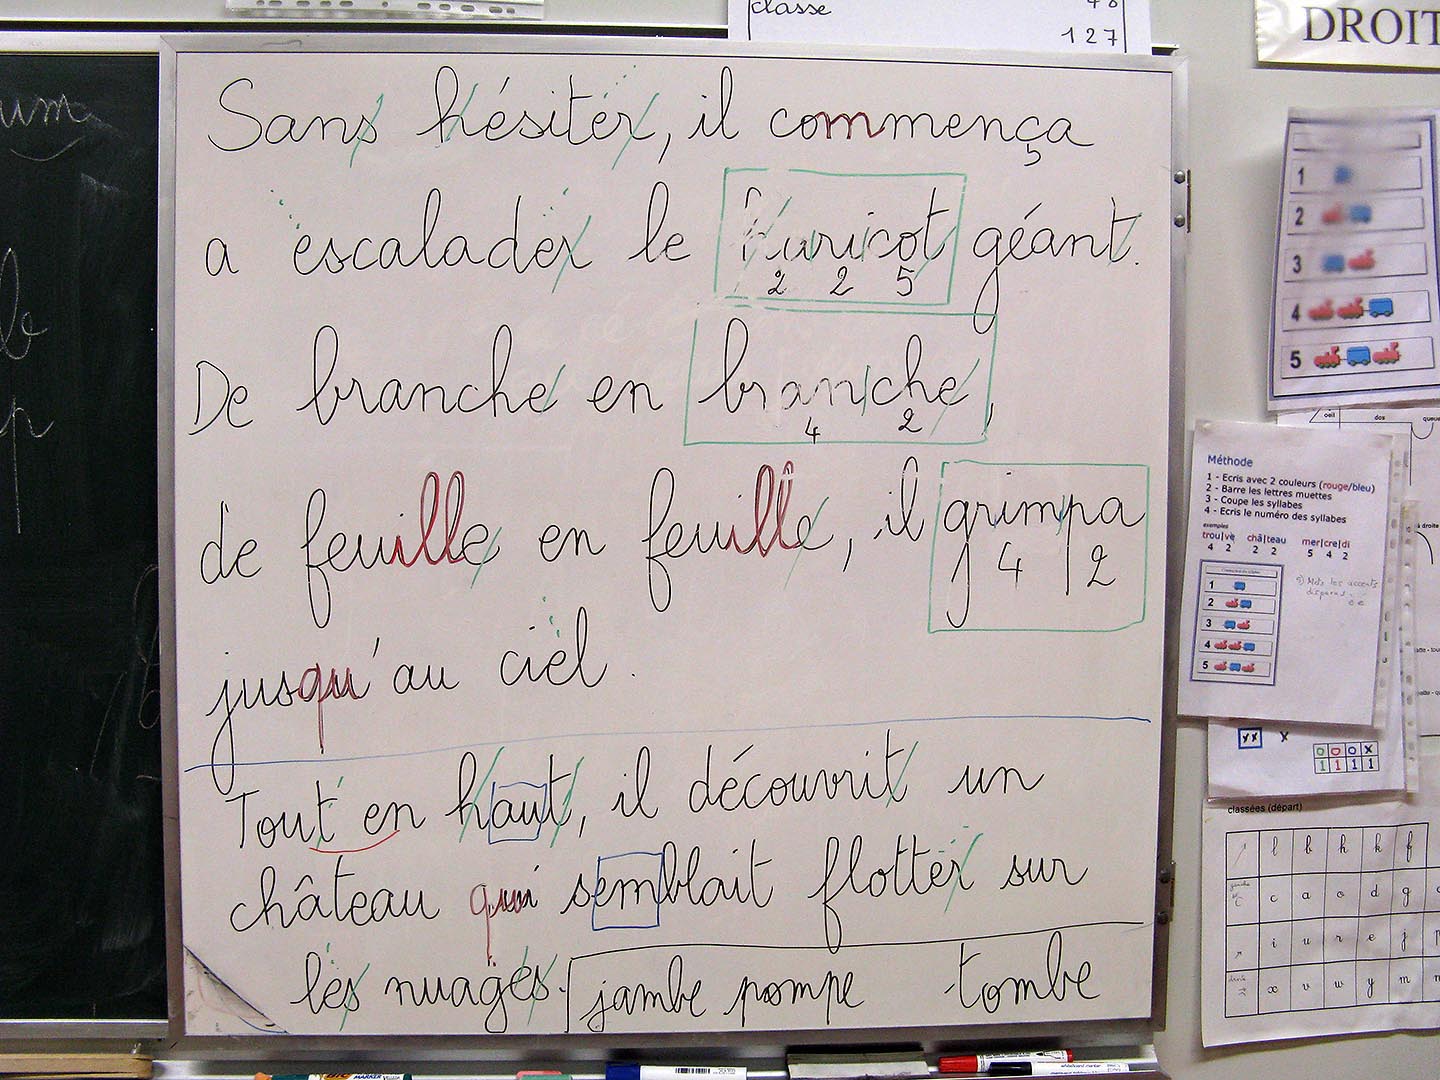 classe
127
DROIT
Sans hésiter, il commença
a escalader le haricot géant.
2 2 5
De branche en branche,
4 2
de feuille en feuille, il grimpa
4 2
jusqu'au ciel.
Tout en haut, il découvrit un
château qui semblait flotter sur
les nuages.
jambe pompe tombe
um
p
1
2
3
4
5
oeil dos queue
Méthode
1 - Ecris avec 2 couleurs (rouge/bleu)
2 - Barre les lettres muettes
3 - Coupe les syllabes
4 - Ecris le numéro des syllabes
exemples
trou|ve châ|teau mer|cre|di
4 2 2 2 5 4 2
5) Mets les accents
disparus
1
2
3
4
5
à droite
x x x
0 0 0 x
1 1 1 1
classées (départ)
l b h k f
c a o d g
i u r e j p
x v w y m n